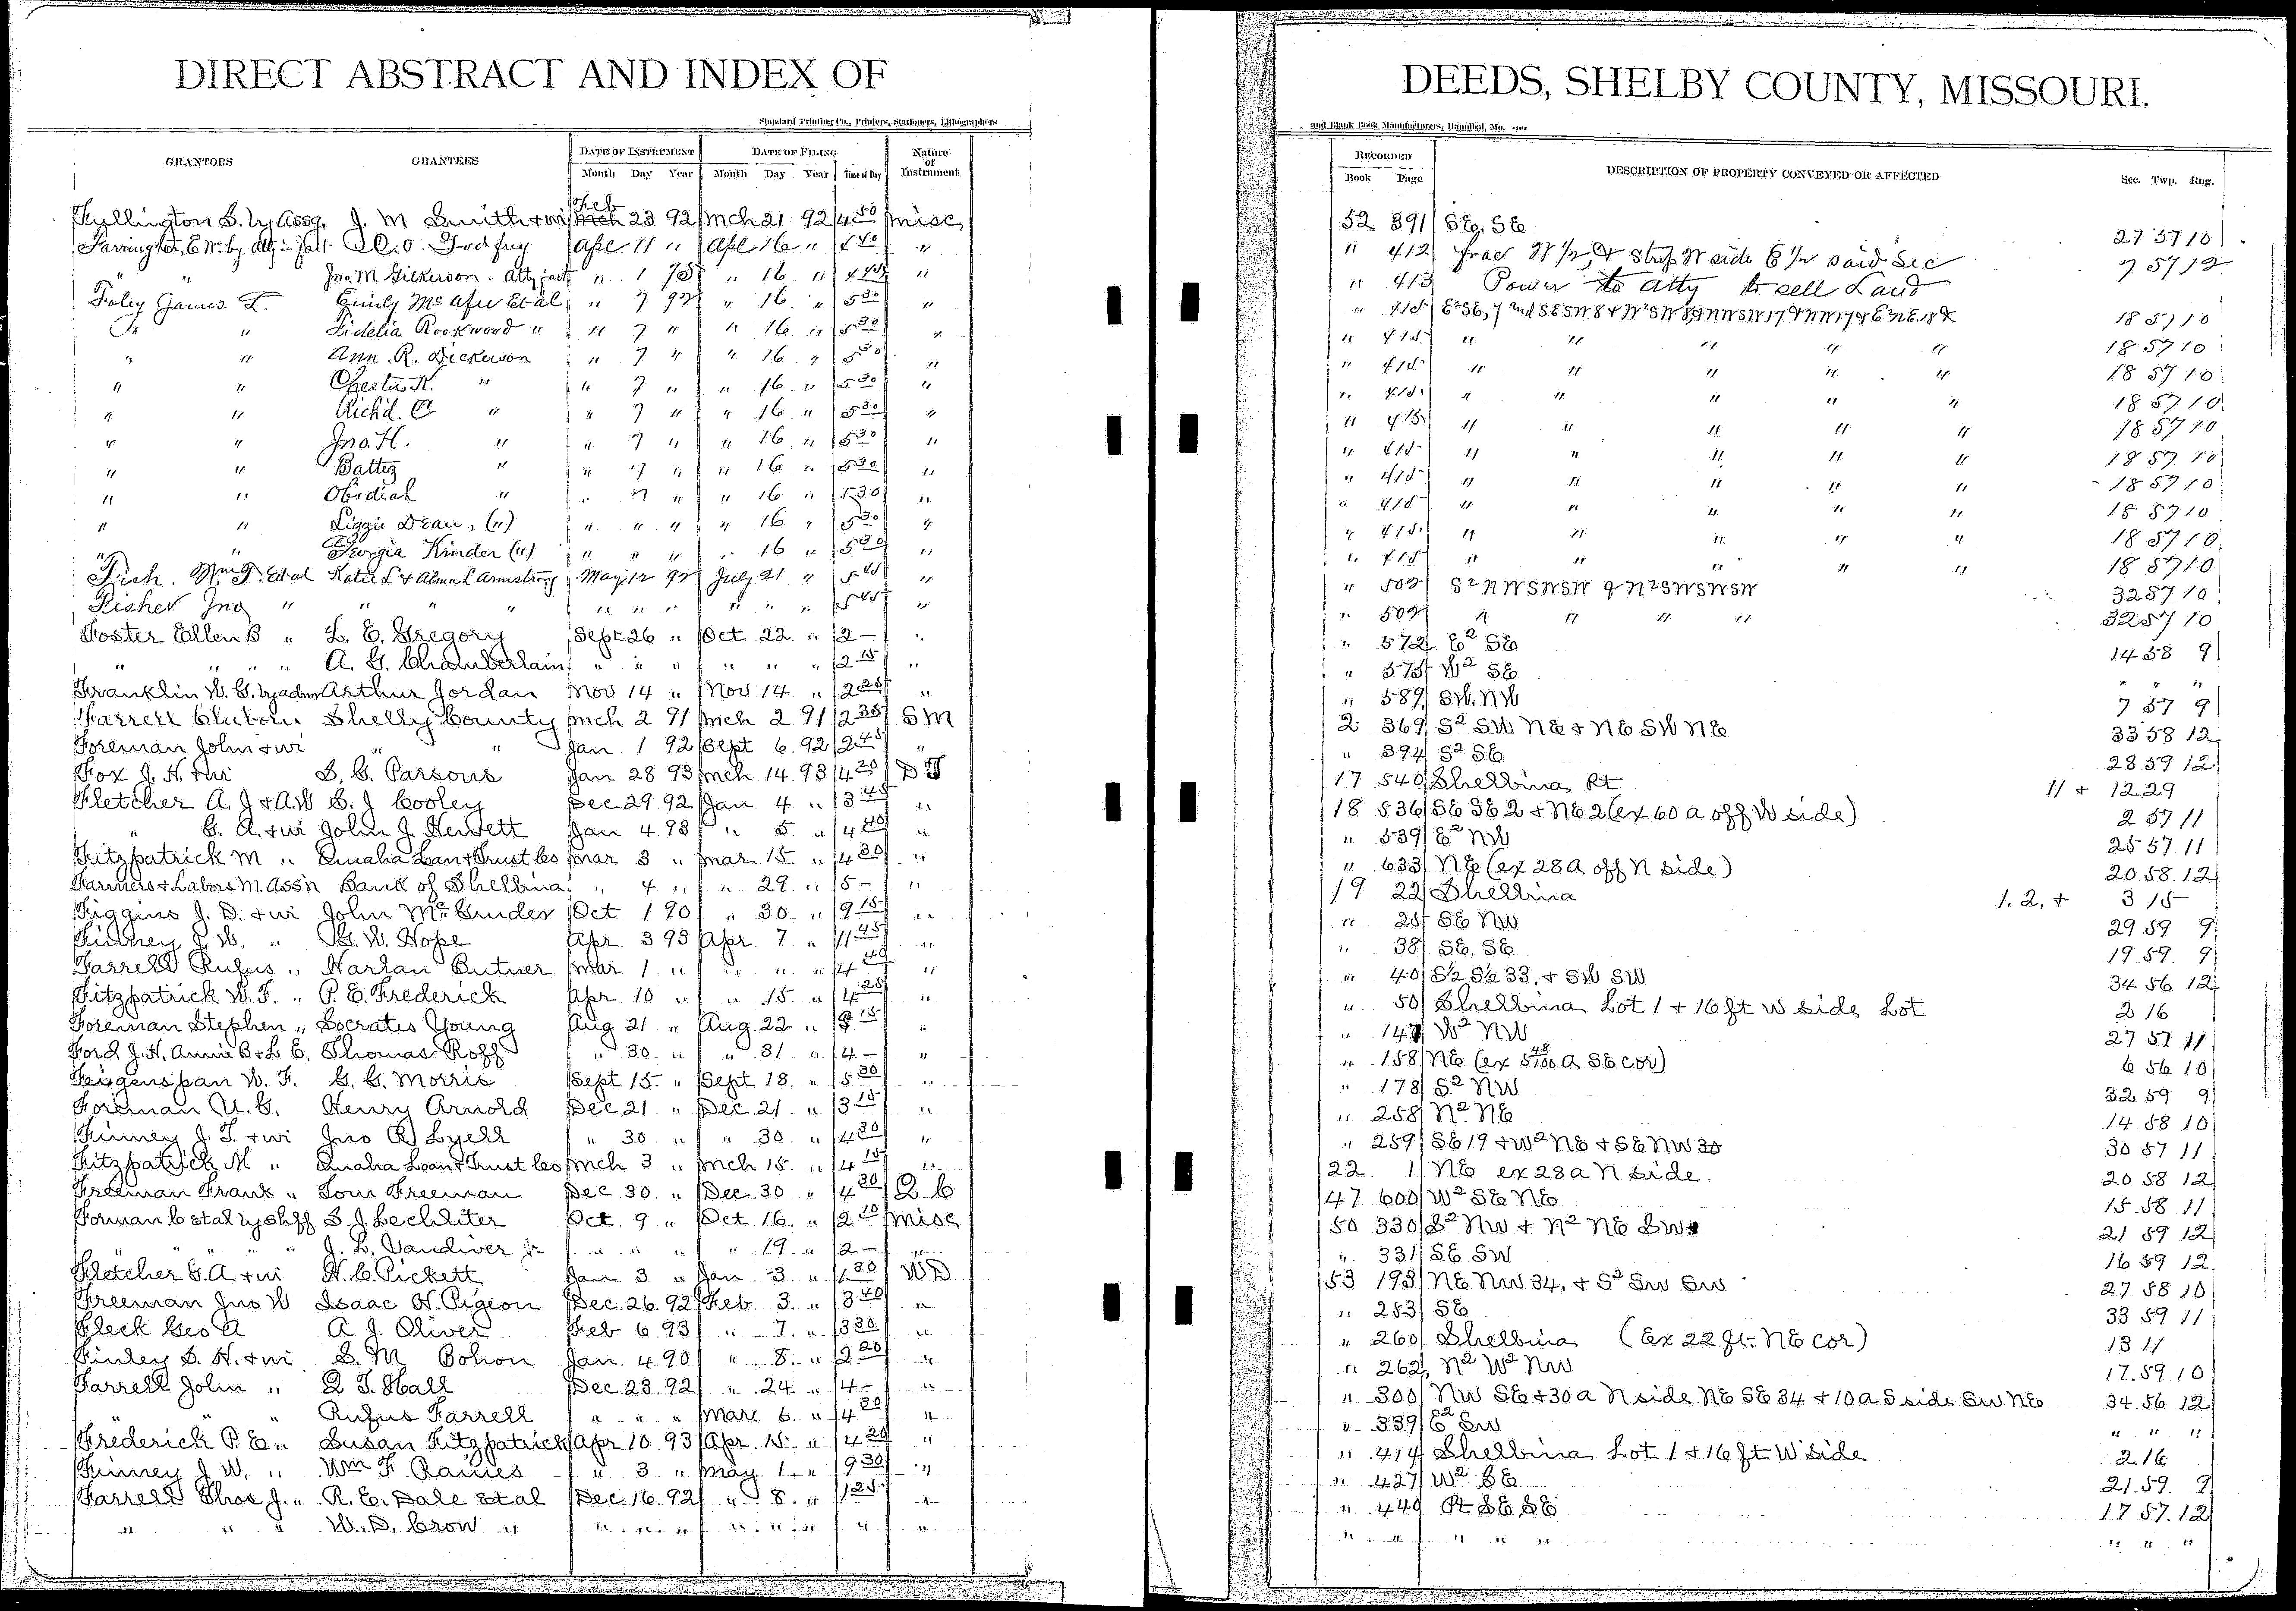 DIRECT ABSTRACT AND INDEX OF
Standard Printing Co., Printers, Stationers, Lithographers
GRANTORS GRANTEES DATE OF INSTRUMENT DATE OF FILING Nature of Instrument
Month Day Year Month Day Year Time of Day
Feb
Fullington S. by Assg. J. M Smith + wi Mch 23 92 Mch 21 92 4 50 Misc
Farrington, E W. by atty in fact Godfrey Apl 11 " Apl 16 " 4 40 "
" Jno. M Gilkerson. Atty fact " 1 75 " 16 " 4 45 "
Foley James L. Emily McAfee et al " 7 92 " 16 " 5 30 "
" " Fidelia Rookwood " " 7 " " 16 " 5 30 "
" " Ann. R. Dickerson " 7 " " 16 " 5 30 "
" " Chester K. " " 7 " " 16 " 5 30 "
" " Rich'd. " " 7 " " 16 " 5 30 "
" " Jno. H. " " 7 " " 16 " 5 30 "
" " " " 7 " " 16 " 5 30 "
" " Obidiah " " 7 " " 16 " 5 30 "
" " Lizzie Dean, (") " " " " 16 " 5 30 "
" " Georgia Kinder (") " " " " 16 " 5 30 "
Fish. Wm T. et al Katie L + Alma L Armstrong May 12 92 July 21 " 5 45 "
Fisher Jno " " " " " " " " " " 5 45 "
Foster Ellen B " L. E. Gregory Sept 26 " Oct 22 " 2 - "
" " " " A. G. Chamberlain " " " " " " 2 15 "
Franklin W. G. by adm Arthur Jordan Nov 14 " Nov 14 " 2 25 "
Farrell Cluton. Shelby County Mch 2 91 Mch 2 91 2 35 S M
Foreman John + wi " " Jan 1 92 Sept 6 92 2 45 "
Fox J. H. + wi S. G. Parsons Jan 28 93 Mch 14 93 4 20 D T
Fletcher A. J + A.W S. J Cooley Dec 29 92 Jan 4 " 3 45 "
" G. A. + wi John J. Hewett Jan 4 93 " 5 " 4 40 "
Fitzpatrick M " Omaha Loan + Trust Co Mar 3 " Mar 15 " 4 30 "
Farmers + Labors M. Ass'n Bank of Shelbina " 4 " " 29 " 5 - "
Figgins J. D. + wi John McGruder Oct 1 90 " 30 " 9 15 "
Finney J. W. " G. W. Hope Apr. 3 93 Apr. 7 " 11 45 "
Farrell Rufus " Harlan Butner Mar 1 " " " " 4 40 "
Fitzpatrick W. F. " P. E. Frederick Apr. 10 " " 15 " 4 25 "
Foreman Stephen " Socrates Young Aug 21 " Aug 22 " 15 "
Ford J. H. Annie B + L E. Thomas Roff " 30 " " 31 " 4 - "
Feigenspan W. F. G. G. Morris Sept 15 " Sept 18 " 5 30 "
Foreman U. G. Henry Arnold Dec 21 " Dec 21 " 3 15 "
Finney J. T. + wi Jno R Lyell " 30 " " 30 " 4 30 "
Fitzpatrick M " Omaha Loan + Trust Co Mch 3 " Mch 15 " 4 15 "
Freeman Frank " Tom Freeman Dec 30 " Dec 30 " 4 30 Q C
Forman C et al by shff S. J. Lechliter Oct 9 " Oct 16 " 2 10 Misc
" " " " J. L. Vandiver jr " " " " 19 " 2 - "
Fletcher G. A + wi H. C. Pickett Jan 3 " Jan 3 " 1 30 W D
Freeman Jno W Isaac H. Pigeon Dec 26 92 Feb 3 " 3 40 "
Fleck Geo A A J. Oliver Feb 6 93 " 7 " 3 30 "
Finley S. H. + wi S. M Bohon Jan. 4 90 " 8 " 2 20 "
Farrell John " Q T. Hall Dec 23 92 " 24 " 4 - "
" " " Rufus Farrell " " " Mar. 6 " 4 30 "
Frederick P. E. " Susan Fitzpatrick Apr 10 93 Apr. 15 " 4 20 "
Finney J W. " Wm F Raines " 3 " May 1 " 9 30 "
Farrell Thos J. " R. E. Dale et al Dec. 16 92 " 8 " 1 25 "
" " " W. D. Crow " " " " " " " " "
DEEDS, SHELBY COUNTY, MISSOURI.
and Blank Book Manufacturers, Hannibal, Mo.
RECORDED DESCRIPTION OF PROPERTY CONVEYED OR AFFECTED Sec. Twp. Rng.
Book Page
52 391 SE, SE 27 57 10
" 412 frac W 1/2, & strip W side E 1/2 said Sec 7 57 12
" 413 Power to atty to sell Land
" 415 E2SE, 7 and SESW 8 & W2SW 8, & NWSW 17, & NW 17 & E2NE 18 & 18 57 10
" 415 " " " " " 18 57 10
" 415 " " " " " 18 57 10
" 415 " " " " " 18 57 10
" 415 " " " " " 18 57 10
" 415 " " " " " 18 57 10
" 415 " " " " " 18 57 10
" 415 " " " " " 18 57 10
" 415 " " " " " 18 57 10
" 415 " " " " " 18 57 10
" 502 S2NWSWSW & N2SWSWSW 32 57 10
" 502 " " " " 32 57 10
" 572 E2 SE 14 58 9
" 575 W2 SE " " "
" 589 SW. NW 7 57 9
2 369 S2 SW NE + NE SW NE 33 58 12
" 394 S2 SE 28 59 12
17 540 Shelbina Pt 11 + 12 29
18 536 SE SE 2 + NE 2 (ex 60 a off W side) 2 57 11
" 539 E2 NW 25 57 11
" 633 NE (ex 28 a off N side) 20 58 12
19 22 Shelbina 1, 2, + 3 15
" 25 SE NW 29 59 9
" 38 SE. SE 19 59 9
" 40 S1/2 S1/2 33, + SW SW 34 56 12
" 50 Shelbina Lot 1 + 16 ft W side Lot 2 16
" 147 W2 NW 27 57 11
" 158 NE (ex 5 48/100 a SE cor) 6 56 10
" 178 S2 NW 32 59 9
" 258 N2 NE 14 58 10
" 259 SE 19 + W2 NE + SE NW 30 30 57 11
22 1 NE ex 28 a N side 20 58 12
47 600 W2 SE NE 15 58 11
50 330 S2 NW + N2 NE SW 21 59 12
" 331 SE SW 16 59 12
53 193 NE NW 34, + S2 SW SW 27 58 10
" 253 SE 33 59 11
" 260 Shelbina (Ex 22 ft. NE cor) 13 11
" 262 N2 W2 NW 17 59 10
" 300 NW SE + 30 a N side NE SE 34 + 10 a S side SW NE 34 56 12
" 339 E2 SW " " "
" 414 Shelbina Lot 1 + 16 ft W side 2 16
" 427 W2 SE 21 59 9
" 440 Pt SE SE 17 57 12
" " " " " " " " "